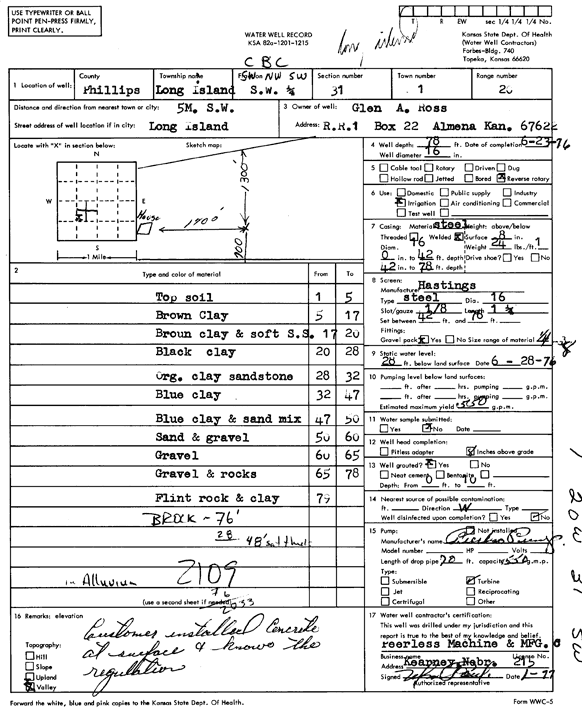 USE TYPEWRITER OR BALL
POINT PEN-PRESS FIRMLY,
PRINT CLEARLY.
T R EW sec 1/4 1/4 1/4 No.
WATER WELL RECORD
KSA 82a-1201-1215
Kansas State Dept. Of Health
(Water Well Contractors)
Forbes-Bldg. 740
Topeka, Kansas 66620
C B C
1 Location of well: County Phillips Township name Long Island Fraction SW NW SW S.W. ¼ Section number 31 Town number 1 Range number 20
Distance and direction from nearest town or city: 5M. S.W.
3 Owner of well: Glen A. Ross
Street address of well location if in city: Long Island
Address: R.R.1 Box 22 Almena Kan. 67622
Locate with "X" in section below: Sketch map:
N
W E
S
1 Mile
House
1300'
1700'
900'
4 Well depth: 78 ft. Date of completion 6-23-76
Well diameter 16 in.
5 Cable tool Rotary Driven Dug
Hollow rod Jetted Bored Reverse rotary
6 Use: Domestic Public supply Industry
Irrigation Air conditioning Commercial
Test well
7 Casing: Material steel Height: above/below
Threaded Welded Surface 8 in.
Diam. 16 Weight 24 lbs./ft. 1
0 in. to 42 ft. depth Drive shoe? Yes No
42 in. to 78 ft. depth
8 Screen:
Manufacturer Hastings
Type steel Dia. 16
Slot/gauze 1/8 Length
Set between 42 ft. and 78 ft.
Fittings:
Gravel pack Yes No Size range of material
9 Static water level:
28 ft. below land surface Date 6-28-76
10 Pumping level below land surfaces:
ft. after hrs. pumping g.p.m.
ft. after hrs. pumping g.p.m.
Estimated maximum yield 550 g.p.m.
11 Water sample submitted:
Yes No Date
12 Well head completion:
Pitless adapter Inches above grade
13 Well grouted? Yes No
Neat cement Bentonite
Depth: From 0 ft. to 10 ft.
14 Nearest source of possible contamination:
ft. Direction W Type
Well disinfected upon completion? Yes No
15 Pump: Not installed
Manufacturer's name
Model number HP Volts
Length of drop pipe 70 ft. capacity 550 g.m.p.
Type:
Submersible Turbine
Jet Reciprocating
Centrifugal Other
2 Type and color of material From To
Top soil 1 5
Brown Clay 5 17
Broun clay & soft S.S. 17 20
Black clay 20 28
Org. clay sandstone 28 32
Blue clay 32 47
Blue clay & sand mix 47 50
Sand & gravel 50 60
Gravel 60 65
Gravel & rocks 65 78
Flint rock & clay 79
BROCK - 76'
28
48'
in Alluvium
2109
76
(use a second sheet if needed)
2033
16 Remarks: elevation
Customer installed Concrete
at surface & knows the
regulation
Topography:
Hill
Slope
Upland
Valley
17 Water well contractor's certification:
This well was drilled under my jurisdiction and this
report is true to the best of my knowledge and belief.
Peerless Machine & MFG. C
Business name License No.
Address Kearney, Nebr. 215
Signed Date 1-77
Authorized representative
1 20W 31 SW
Forward the white, blue and pink copies to the Kansas State Dept. Of Health.
Form WWC-5